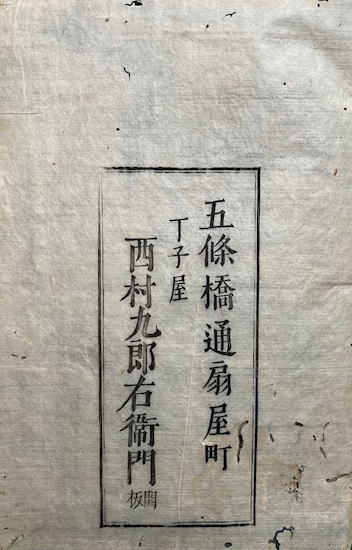 五條橋通扇屋町
丁子屋
西村九郎右衞門
開板